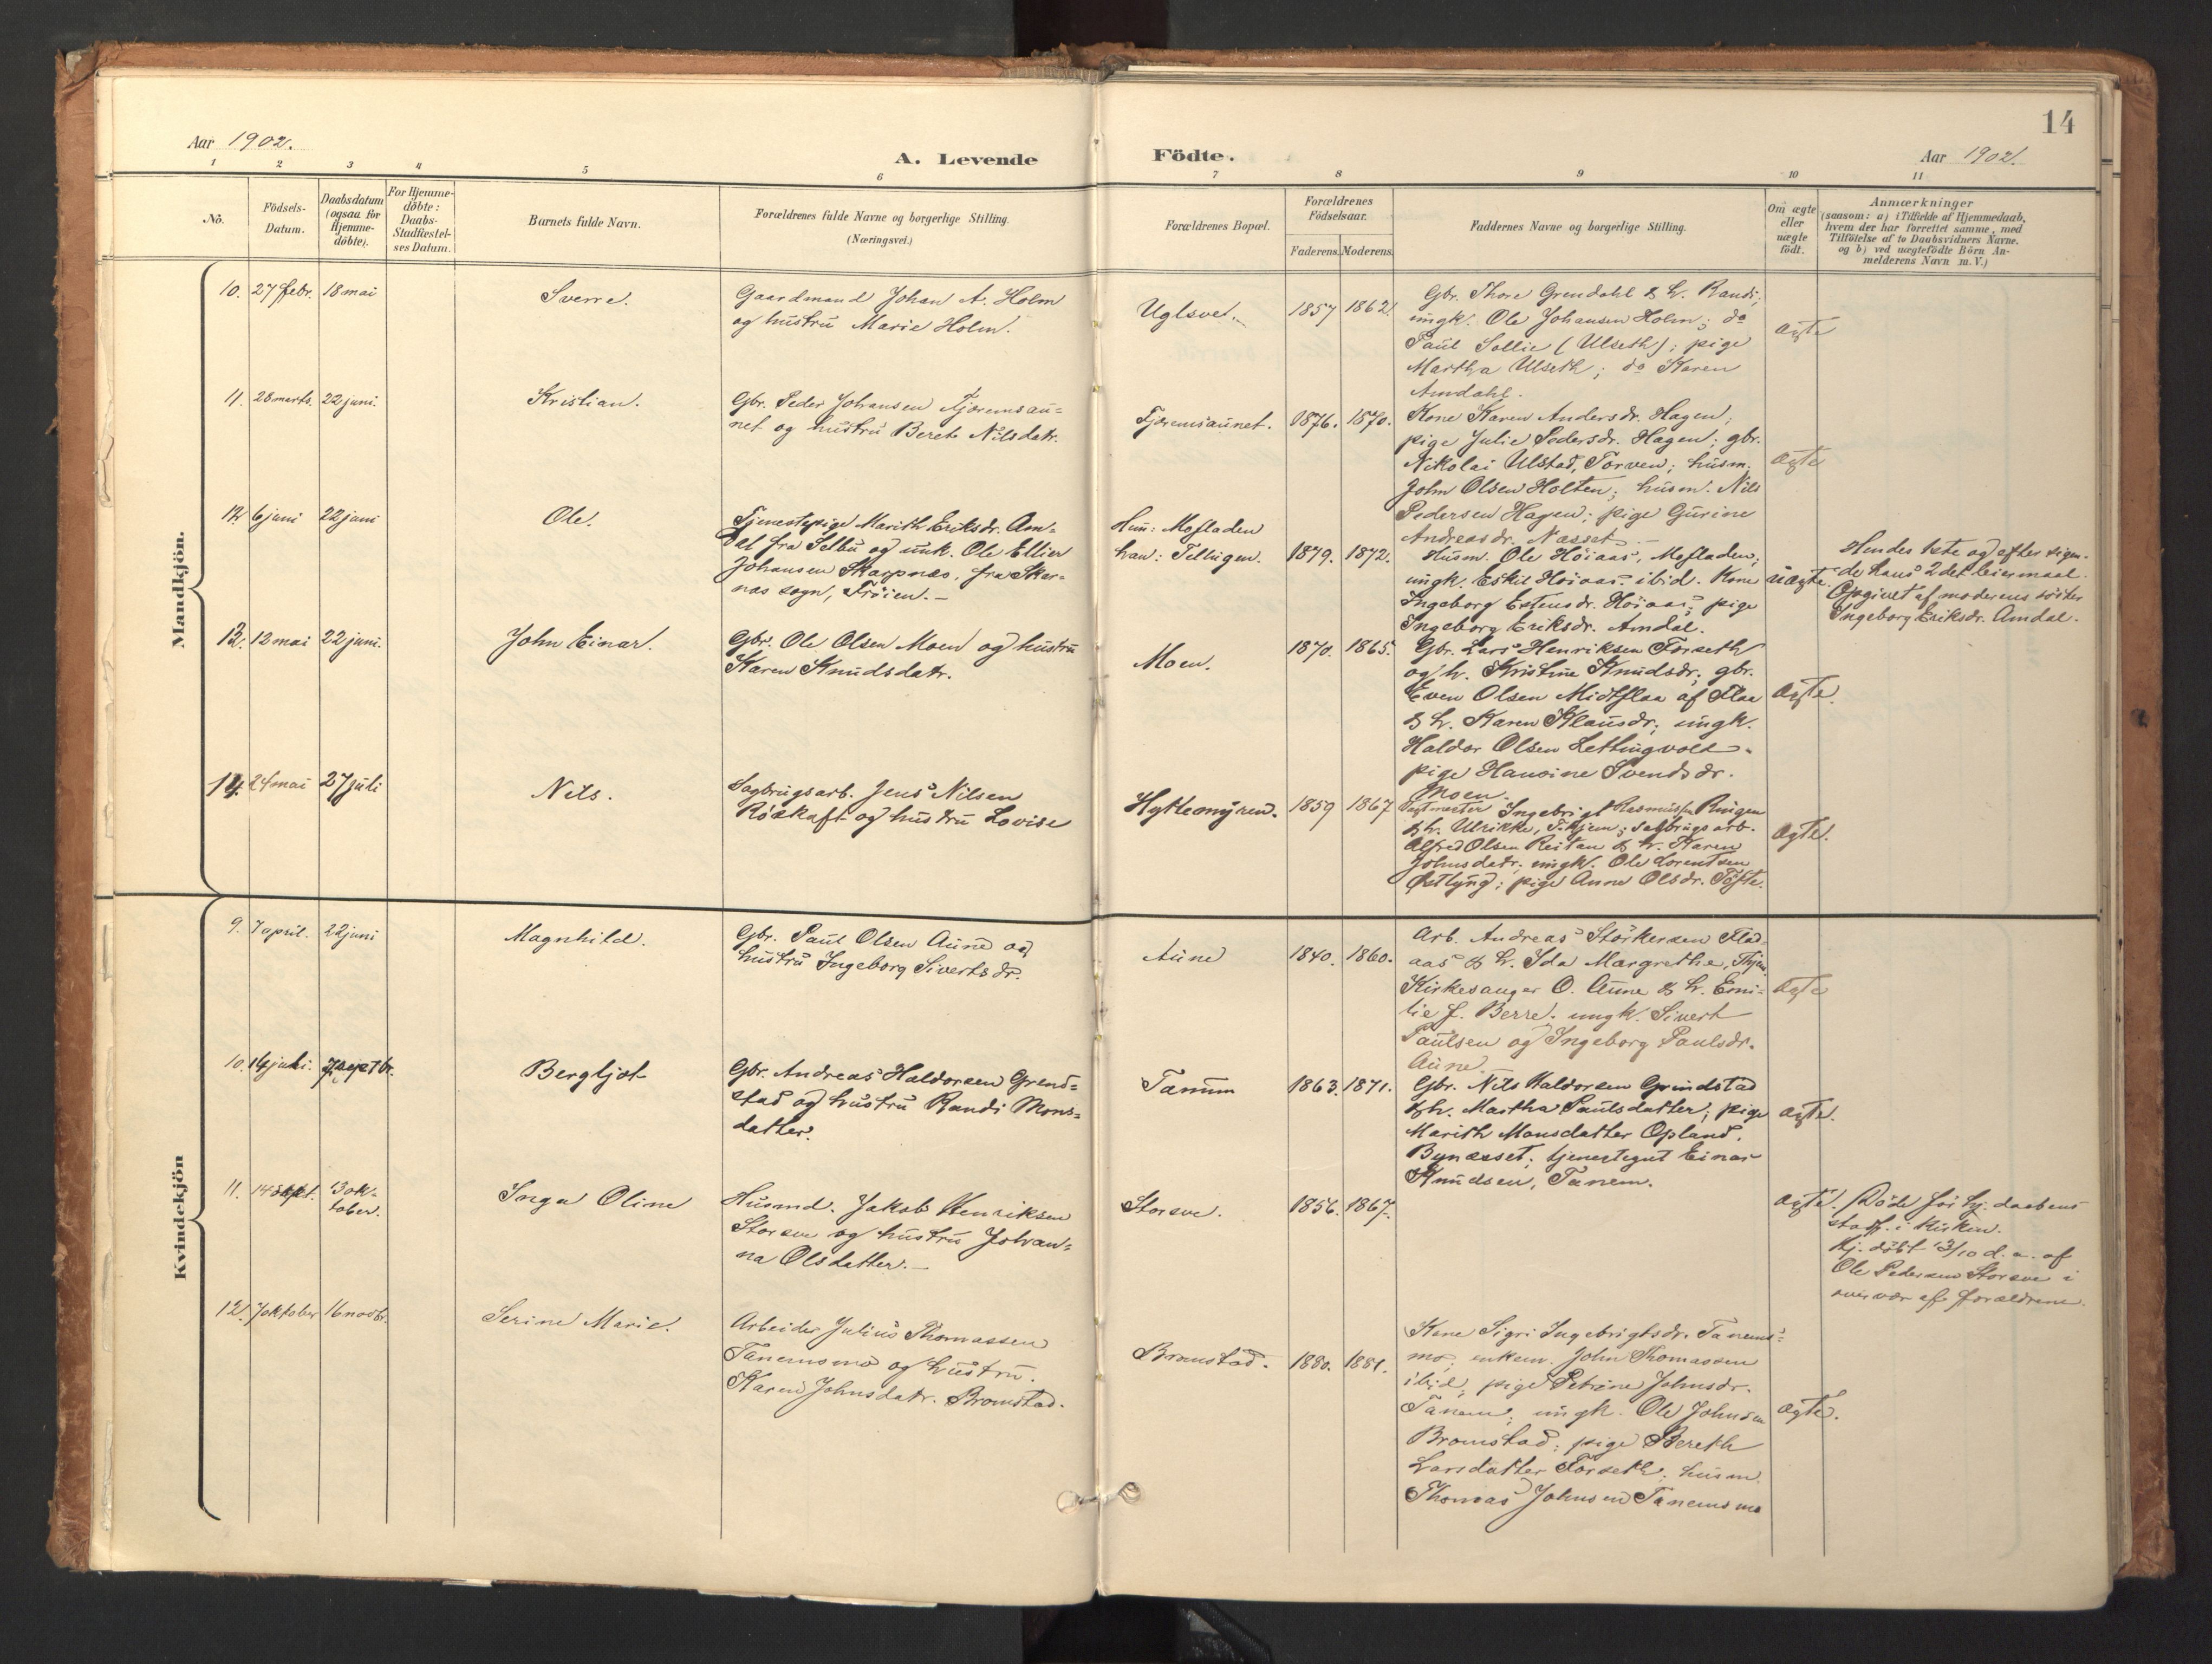 14
Aar 1902.
A. Levende
Födte.
Aar 1902.
1 2 3 4 5 6 7 8 9 10 11
No.
Födsels-
Datum.
Daabsdatum
(ogsaa for
Hjemme-
döbte).
For Hjemme-
döbte:
Daabs-
Stadfæstel-
ses Datum.
Barnets fulde Navn.
Forældrenes fulde Navne og borgerlige Stilling.
(Næringsvei.)
Forældrenes Bopæl.
Forældrenes
Födselsaar.
Faderens. Moderens.
Faddernes Navne og borgerlige Stilling.
Om ægte
eller
uægte
födt.
Anmærkninger
(saasom: a) i Tilfælde af Hjemmedaab,
hvem der har forrettet samme, med
Tilföielse af to Daabsvidners Navne.
og b) ved uægtefödte Börn An-
melderens Navn m. V.)
Mandkjön.
10. 27 febr. 18 mai
Sverre.
Gaardmand Johan A. Holm
og hustru Marie Holm.
Uglsvet.
1857 1862.
Gbr. Thore Grendahl & h. Randi;
ungk. Ole Johansen Holm; do
Paul Sollie (Ulseth); pige
Martha Ulseth; do Karen
Amdahl.
ægte
11. 28 marts. 22 juni.
Kristian.
Gbr. Peder Johansen Fjæremsau-
net og hustru Berete Nilsdatr.
Fjæremsaunet.
1876. 1870.
Kone Karen Andersdr. Hagen;
pige Julie Pedersdr. Hagen; gbr.
Nikolai Ulstad, Torven; husm.
John Olsen Holten; husm. Nils
Pedersen Hagen; pige Gurine
Andreasdr. Næsset.
ægte
12. 6 juni 22 juni
Ole.
Tjenestepige Marith Eriksdr. Am-
dal fra Selbu og unk. Ole Ellier
Johansen Skarpnæs, fra
sogn, Fröien.
Hun: Mosladen
han: Tellugen.
1879. 1872.
Husm. Ole Höiaas, Mosladen;
ungk. Eskil Höiaas ibid. Kone
Ingeborg Estensdr. Höiaas; pige
Ingeborg Eriksdr. Amdal.
uægte.
Hendes 1ste og efter sigen-
de hans 2det leiermaal.
Opgivet af moderens söster
Ingeborg Eriksdr. Amdal.
13. 12 mai 22 juni.
John Einar.
Gbr. Ole Olsen Moen og hustru
Karen Knudsdatr.
Moen.
1870. 1865.
Gbr. Lars Henriksen Forseth
og h. Kristine Knudsdr; gbr.
Even Olsen Midtflaa af Flaa
& h. Karen Klausdr; ungk.
Haldor Olsen Lettingvoll
pige Hansine Svendsdr.
Moen.
ægte.
14. 24 mai 27 juli
Nils.
Sagbrugsarb. Jens Nilsen
Röskaft og hustru Lovise
Hyttemyren.
1859 1867
Ingebrigt Rasmussen Ringen
& h. Ulrikke, Tthjem; sagbrugsarb.
Alfred Olsen Reitan & h. Karen
Johnsdatr; ungk. Ole Lorentsen
Östlyng; pige Anne Olsdr. Tofte.
ægte.
Kvindekjön
9. 7 april. 22 juni
Magnhild.
Gbr. Paul Olsen Aune og
hustru Ingeborg Sivertsdr.
Aune
1840. 1860.
Arb. Andreas Störkersen Flad-
aas & h. Ida Margrethe, Thjem.
Kirkesanger O. Aune & h. Emi-
lie f. Berre. ungk. Sivert
Paulsen og Ingeborg Paulsdr.
Aune
ægte
10. 14 juli. 7 septbr.
Bergljot
Gbr. Andreas Haldorsen Grend-
stad og hustru Randi Mons-
datter.
Tanum
1863. 1871.
Gbr. Nils Haldorsen Grindstad
& h. Martha Paulsdatter; pige
Marith Monsdatter Opland,
Bynæsset; tjenestegut Einar
Knudsen, Tanem.
ægte.
11. 14 sept. 13 ok-
tober.
Inga Oline
Husmd. Jakob Henriksen
Storsve og hustru Johan-
na Olsdatter.
Storsve.
1856. 1867.
ægte.
Döde för hj. daabens
stadf. i kirken.
Hj. döbt 13/10 d. a. af
Ole Pedersen Storsve i
overvær af forældrene.
12. 7 oktober 16 novbr.
Serine Marie.
Arbeider Julius Thomassen
Tanemsmo og hustru
Karen Johnsdatr. Bromstad.
Bromstad.
1880. 1881.
Kone Sigri Ingebrigtsdr. Tanems-
mo; enkem. John Thomassen
ibid; pige Petrine Johnsdr.
Tanem; ungk. Ole Johnsen
Bromstad; pige Bereth
Larsdatter Forseth; husm.
Thomas Johnsen Tanemsmo
ægte.